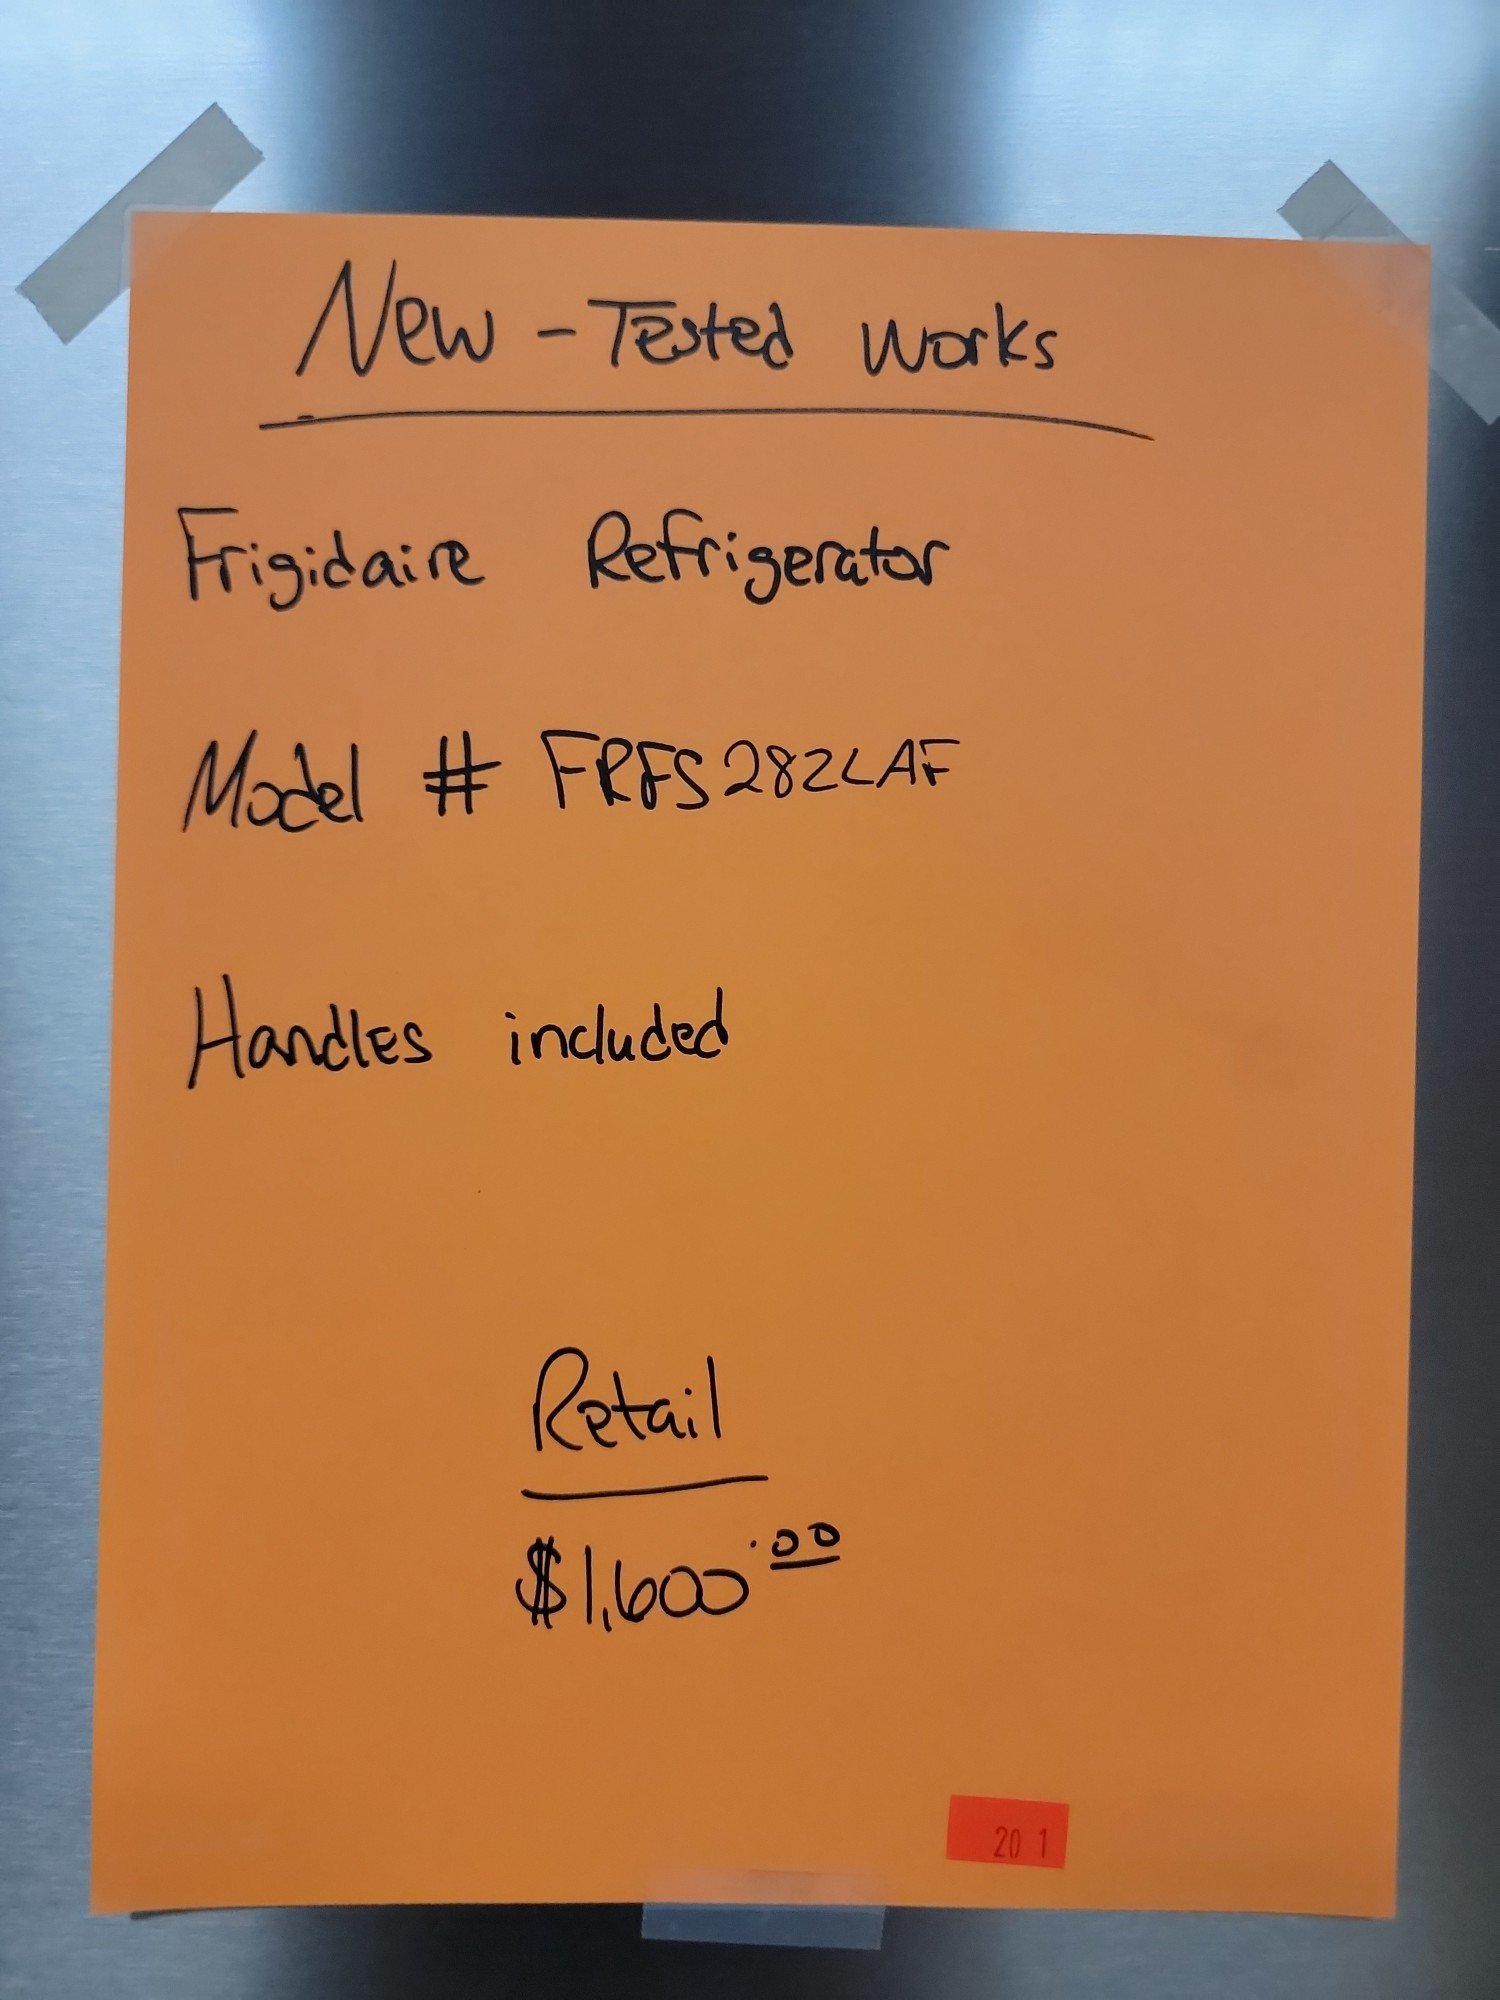 New - Tested Works
Frigidaire Refrigerator
Model # FRFS282LAF
Handles included
Retail
$1,600.00
20 1